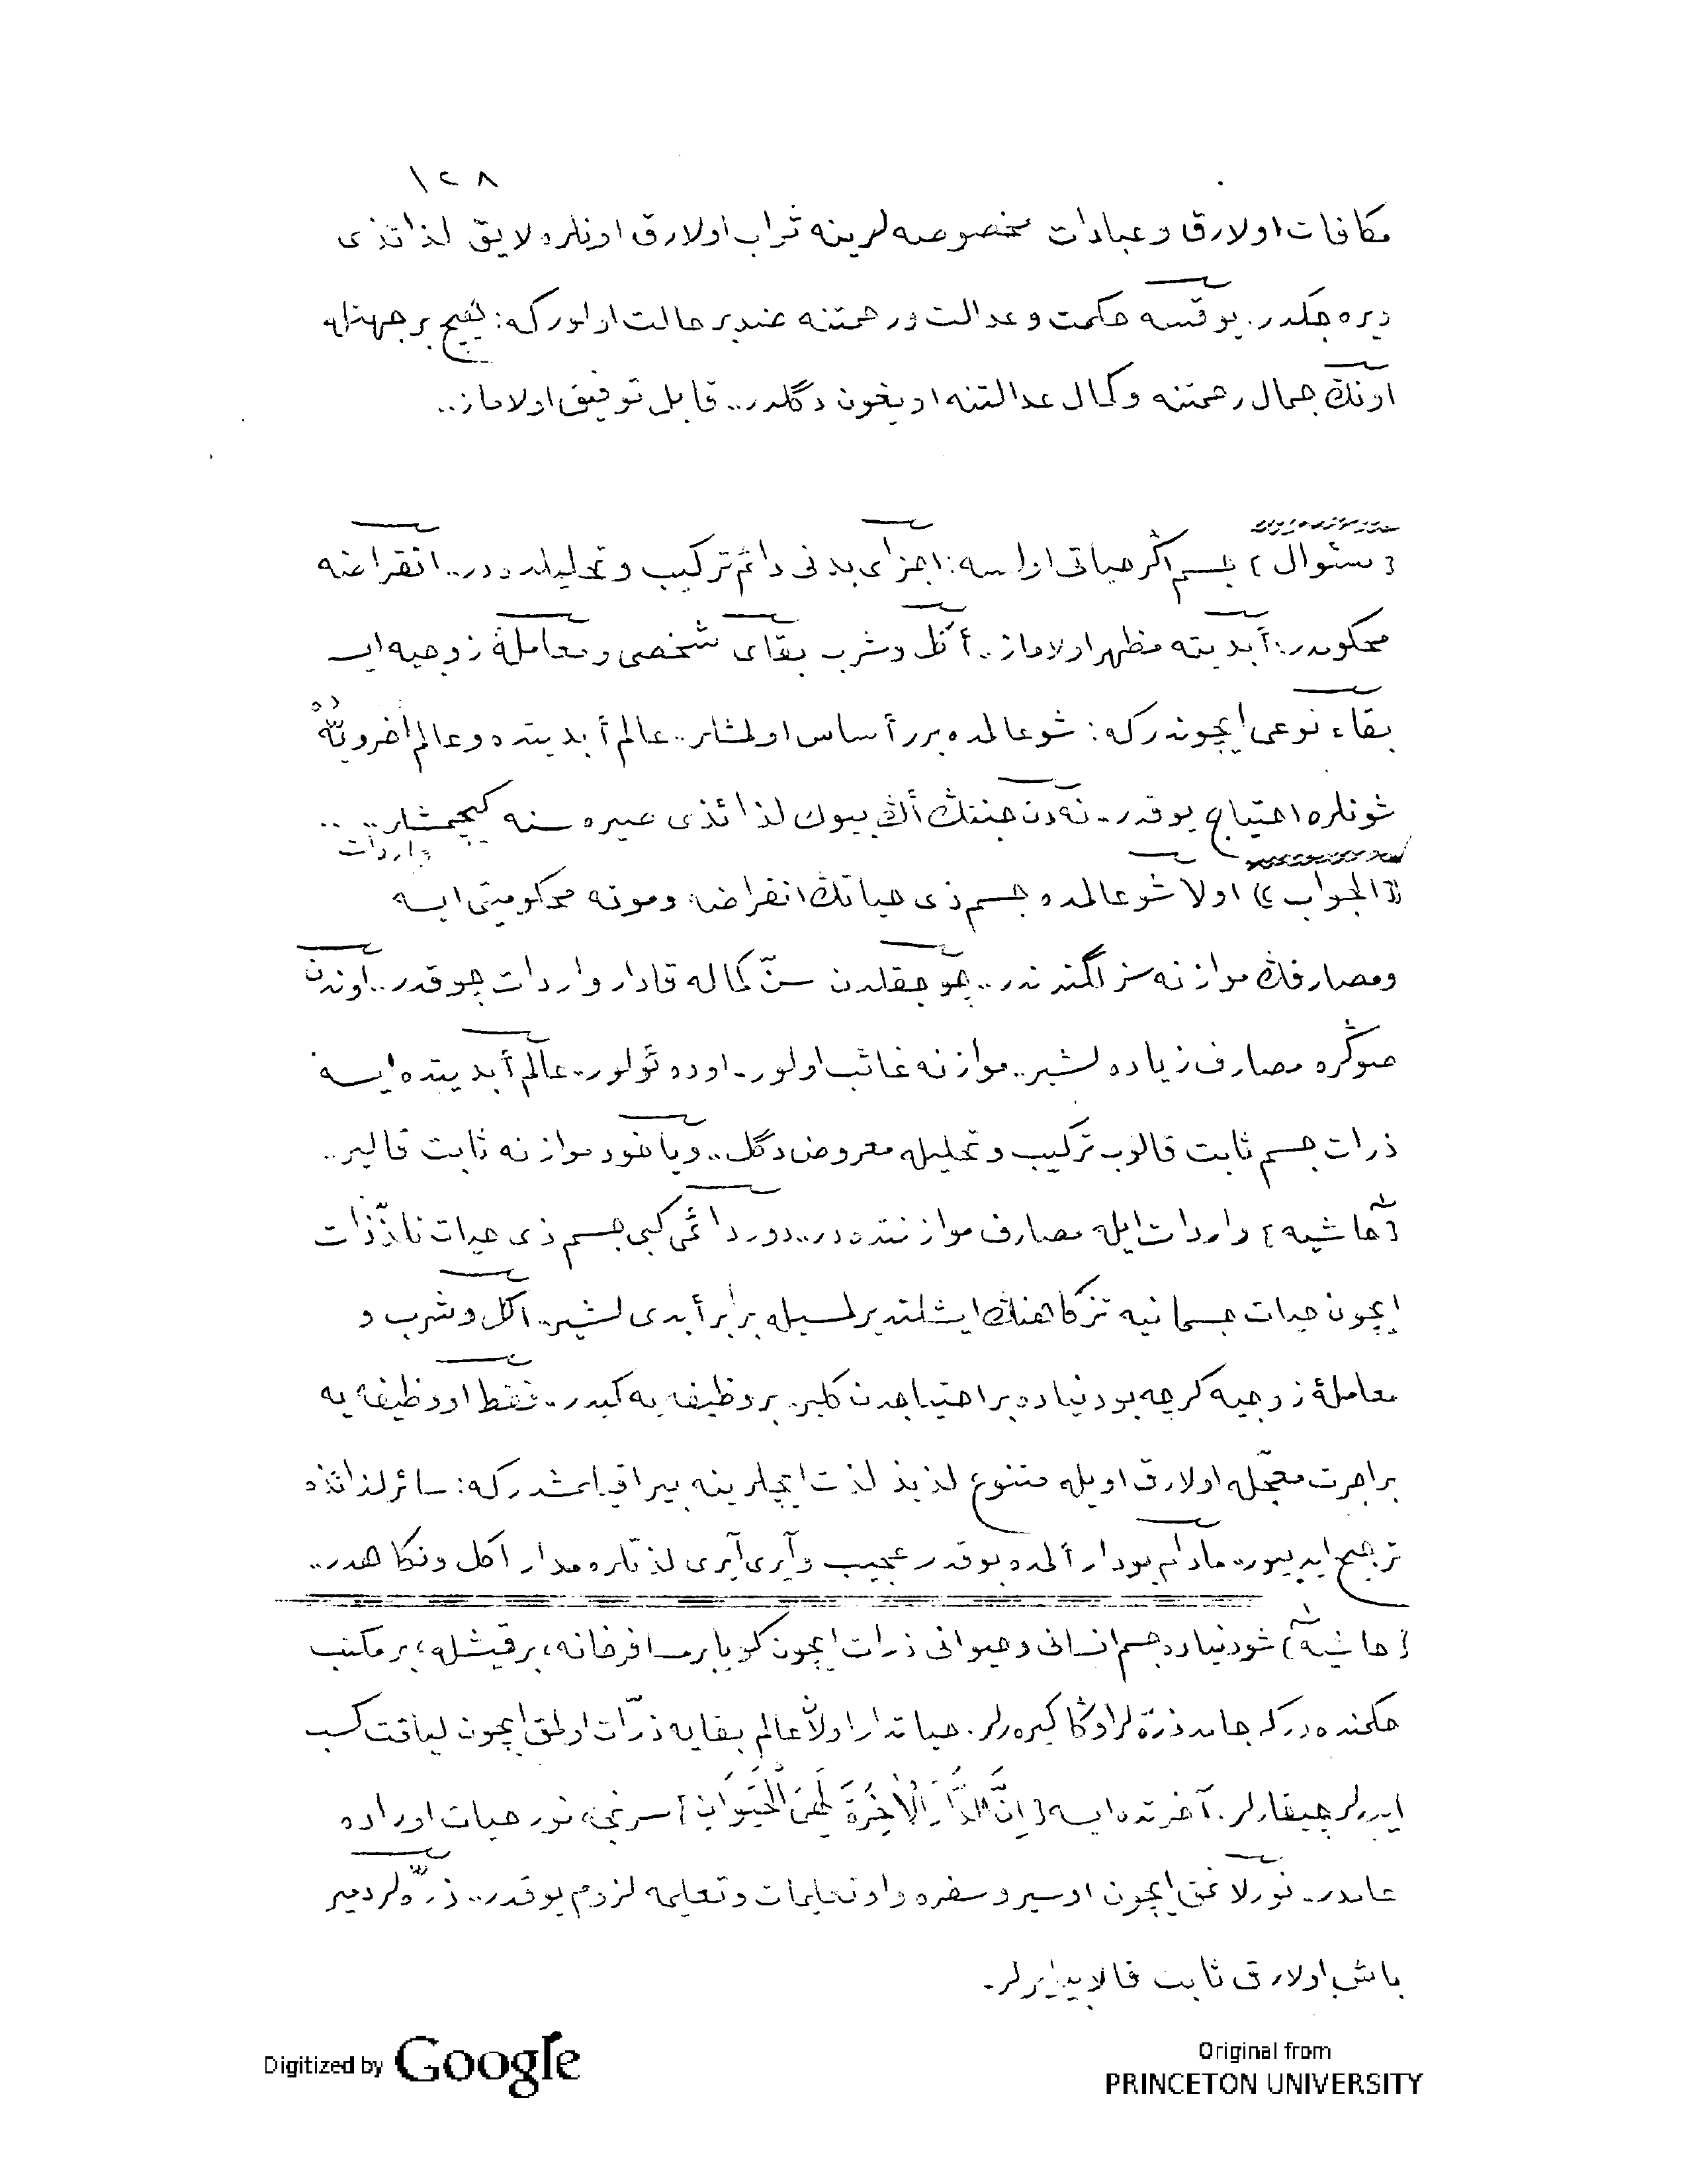 ١٢٨
مكافات اولارق وعبادات مخصوصه‌لرينه ثواب اولارق اونلره لايق لذائذى
ويره‌جكدر. يوقسه حكمت وعدالت ورحمتنه ضد بر حالت اولوركه: هيچ بر جهتله
اونڭ جمال رحمتنه وكمال عدالتنه اويغون دگلدر.. قابل توفيق اولاماز..
[سئوال] جسم اگر حياتى اولسه: اجزاى بدنى دائم تركيب وتحليلده‌در.. انقراضه
محكومدر: أبديته مظهر اولاماز.. أكل وشرب بقاى شخصى ومعاملۀ زوجيه ايسه
بقاء نوعى ايچوندركه: شو عالمده برر أساس اولمشلر.. عالم أبديتده وعالم اخرويده
شونلره احتياج يوقدر.. نه‌دن جنتڭ أڭ بيوك لذائذى صيره‌سنه كيچمشلر....
[الجواب] اولا شو عالمده جسم ذى حياتڭ انقراضه وموته محكوميتى ايسه واردات
ومصارفڭ موازنه‌سزلگندندر.. چوجقلقدن سنّ كماله قادار واردات چوقدر.. اوندن
صوڭره مصارف زياده‌لشير.. موازنه غائب اولور.. اوده ئولور.. عالم أبديتده ايسه
ذرات جسم ثابت قالوب تركيب وتحليله معروض دگل.. وياخود موازنه ثابت قالير..
[حاشيه] واردات ايله مصارف موازنتده‌در.. دور دائمى كبى جسم ذى حيات تلذذات
ايچون حيات جسمانيه تزكاهنڭ ايشلتديرلمسيله برابر أبدى‌لشير.. اكل وشرب و
معاملۀ زوجيه كرچه بو دنياده بر احتياجدن كلير. بر وظيفه‌يه كيدر.. فقط او وظيفه‌يه
بر اجرت معجّله اولارق اويله متنوع لذيذ لذت ايچلرينه بيراقيلمشدركه: سائر لذائذه
ترجيح ايديليور.. مادام بو دار ألمده بوقدر عجيب وآيرى آيرى لذتلره مدار أكل ونكاحدر..
[حاشيه] شو دنياده جسم انسانى وحيوانى ذرات ايچون كويا بر مسافرخانه، بر قيشله، بر مكتب
حكمنده‌دركه جامد ذرّه‌لر اوڭا كيره‌رلر. حياتدار اولان عالم بقايه ذرّات اولمق ايچون لياقت كسب
ايدرلر چيقارلر. آخرتده ايسه [اِنَّ الدَّارَ الْاٰخِرَةَ لَهِىَ الْحَيَوَانُ] سرنجه نور حيات اوراده
عامدر.. نورلانمق ايچون او سير وسفره واو تعليمات وتعليمه لزوم يوقدر.. ذرّه‌لر دمير
باش اولارق ثابت قالابيليرلر.
Digitized by Google
Original from
PRINCETON UNIVERSITY